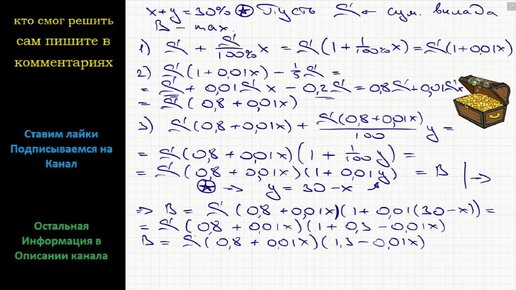 кто смог решить
сам пишите в
комментариях
Ставим лайки
Подписываемся на
Канал
Остальная
Информация в
Описании канала
x+y=30% ⊛ Пусть S сум. вклада
B – max
1) S + S/100% x = S(1 + 1/100% x) = S(1+0,01x)
2) S(1+0,01x) – 1/5 S =
= S + 0,01Sx – 0,2S = 0,8S + 0,01Sx
= S(0,8+0,01x)
3) S(0,8+0,01x) + S(0,8+0,01x)/100 y =
= S(0,8+0,01x)(1 + 1/100 y) =
= S(0,8+0,01x)(1+0,01y) = B | →
⊛ → y = 30-x
⇒ B = S(0,8+0,01x)(1+0,01(30-x)) =
= S(0,8+0,01x)(1+0,3-0,01x)
B = S(0,8+0,01x)(1,3-0,01x)